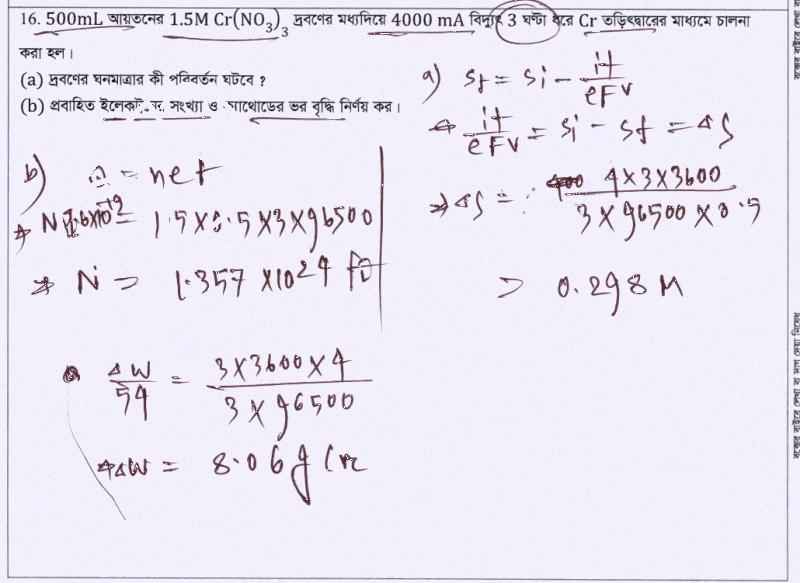 16. 500mL আয়তনের 1.5M Cr(NO₃)₃ দ্রবণের মধ্যদিয়ে 4000 mA বিদ্যুৎ 3 ঘণ্টা ধরে Cr তড়িৎদ্বারের মাধ্যমে চালনা
করা হল।
(a) দ্রবণের ঘনমাত্রার কী পরিবর্তন ঘটবে ?
(b) প্রবাহিত সংখ্যা ও ভর বৃদ্ধি নির্ণয় কর।
a) Sf = Si - it/eFV
it/eFV = Si - Sf = ΔS
⇒ ΔS = 4×3×3600 / 3×96500×0.5
= 0.298 M
b) = neF
⇒ N 1.6×10⁻¹⁹ = 1.5×0.5×3×96500
⇒ N = 1.357×10²⁴
ΔW/54 = 3×3600×4 / 3×96500
ΔW = 8.06g Cr